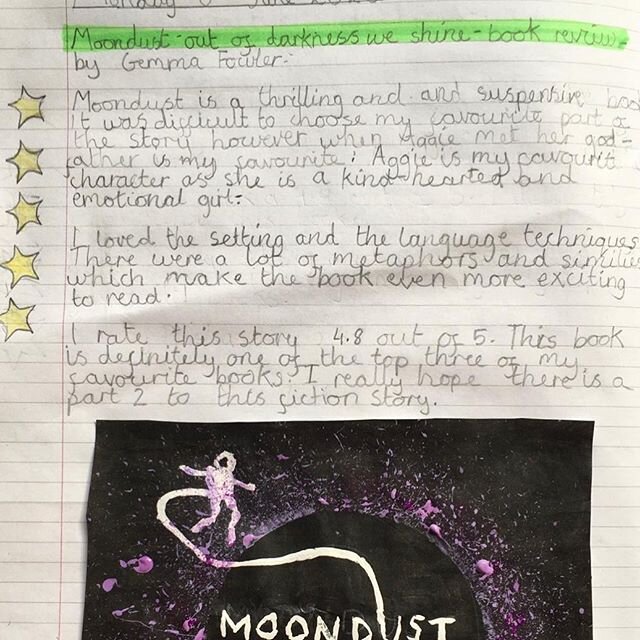 June
Moondust-out of darkness we shine-book review-
by Gemma Fowler-
Moondust is a thrilling and and suspensive book
It was difficult to choose my favourite part of
the story however when Aggie met her god-
father is my favourite; Aggie is my favourit
character as she is a kind-hearted and
emotional girl-
I loved the setting and the language techniques
There were a lot of metaphors and similies
which make the book even more exciting
to read.
I rate this story 4.8 out of 5. This book
is definitely one of the top three of my
favourite books. I really hope there is a
part 2 to this fiction story.
MOONDUST